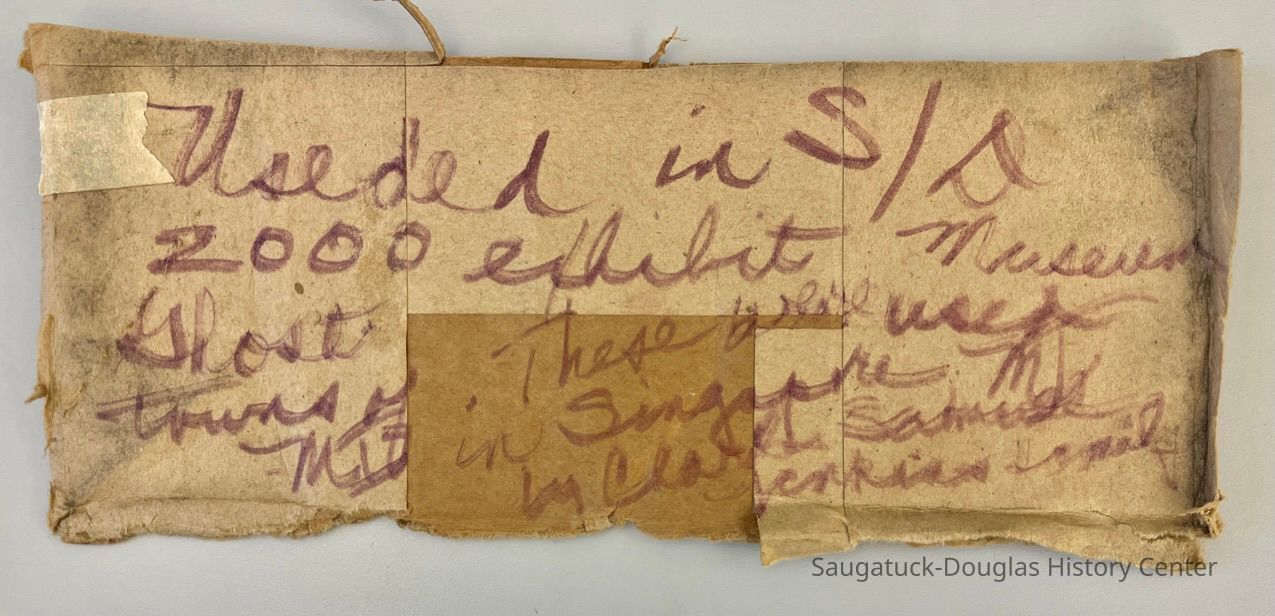 Useded in S/D
2000 exhibit Museum
Ghost These were used
towns of in Singapore Mi
MI by Clara & Samuel
Jenkins family
Saugatuck-Douglas History Center